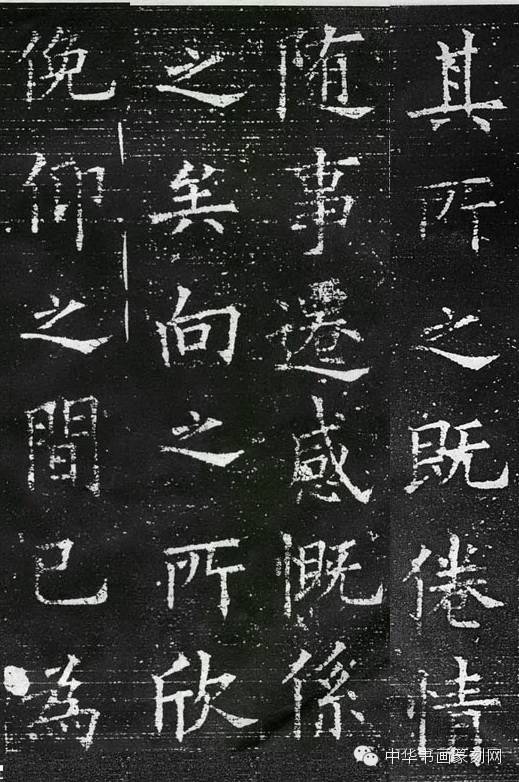 其所之既倦情
随事遷感慨係
之矣向之所欣
俛仰之間已為
中华书画篆刻网